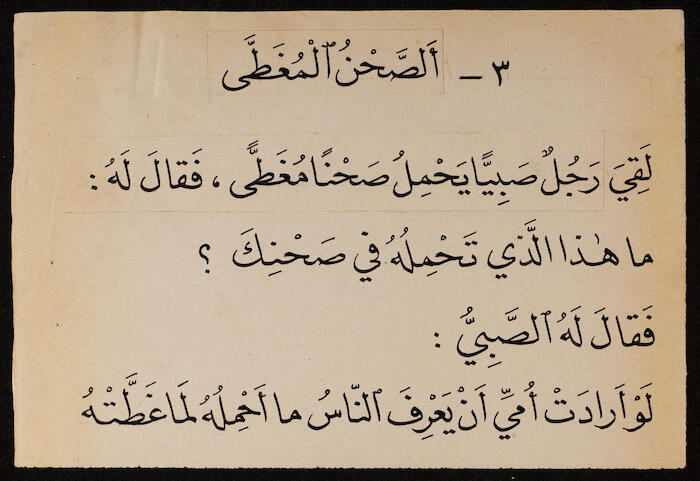 ٣ - أَلصَّحْنُ ٱلْمُغَطَّى
لَقِيَ رَجُلٌ صَبِيًّا يَحْمِلُ صَحْنًا مُغَطًّى ، فَقالَ لَهُ :
ما هٰذا الَّذي تَحْمِلُهُ في صَحْنِكَ ؟
فَقالَ لَهُ ٱلصَّبِيُّ :
لَوْ أَرادَتْ أُمِّي أَنْ يَعْرِفَ ٱلنّاسُ ما أَحْمِلُهُ لَمَا غَطَّتْهُ